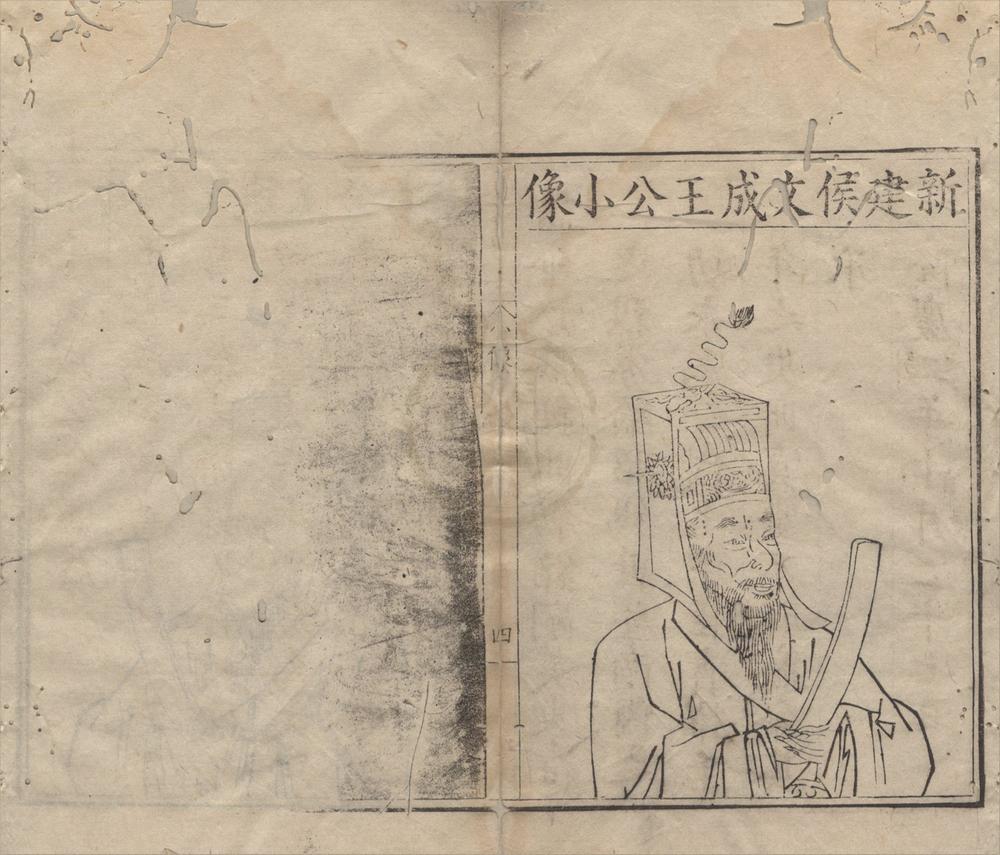 新建侯文成王公小像
小像
四